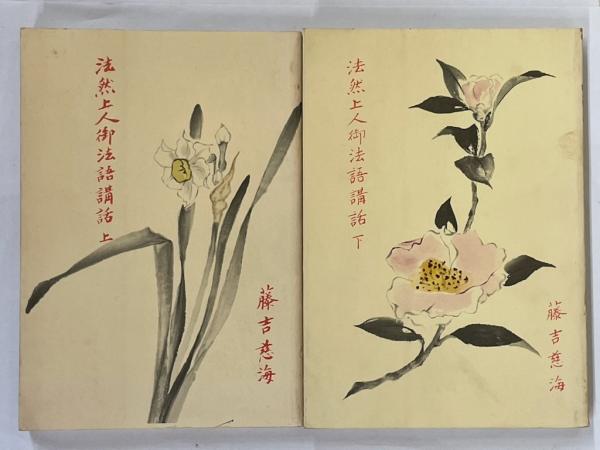 法然上人御法語講話 上
藤吉慈海
法然上人御法語講話 下
藤吉慈海